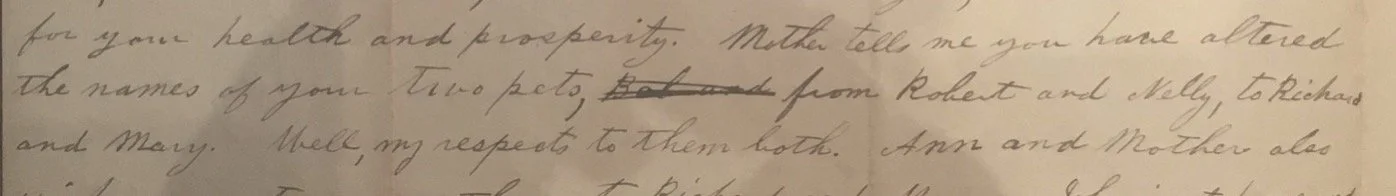 for your health and prosperity. Mother tells me you have altered
the names of your two pets, from Robert and Nelly, to Richard
and Mary. Well, my respects to them both. Ann and Mother also
to Richard and